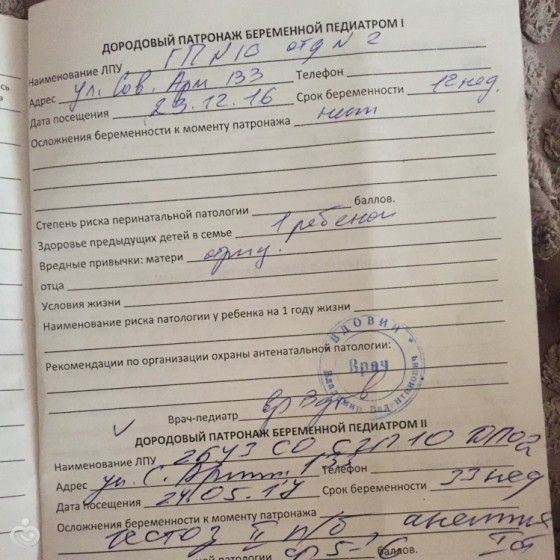 сь
а
ДОРОДОВЫЙ ПАТРОНАЖ БЕРЕМЕННОЙ ПЕДИАТРОМ I
Наименование ЛПУ ГП N 10 отд N 2
Адрес ул. Сов. Арм 133 Телефон
Дата посещения 23.12.16 Срок беременности 12 нед.
Осложнения беременности к моменту патронажа нет
Степень риска перинатальной патологии баллов.
Здоровье предыдущих детей в семье 1 ребенок
Вредные привычки: матери отриц.
отца
Условия жизни
Наименование риска патологии у ребенка на 1 году жизни
Рекомендации по организации охраны антенатальной патологии:
ВДОВИН
Врач
Владимир
Врач-педиатр
ДОРОДОВЫЙ ПАТРОНАЖ БЕРЕМЕННОЙ ПЕДИАТРОМ II
Наименование ЛПУ СО
Адрес ул. С. Телефон
Дата посещения 24.05.17 Срок беременности 33 нед
Осложнения беременности к моменту патронажа анемия
гестоз II п/б
патологии баллов.